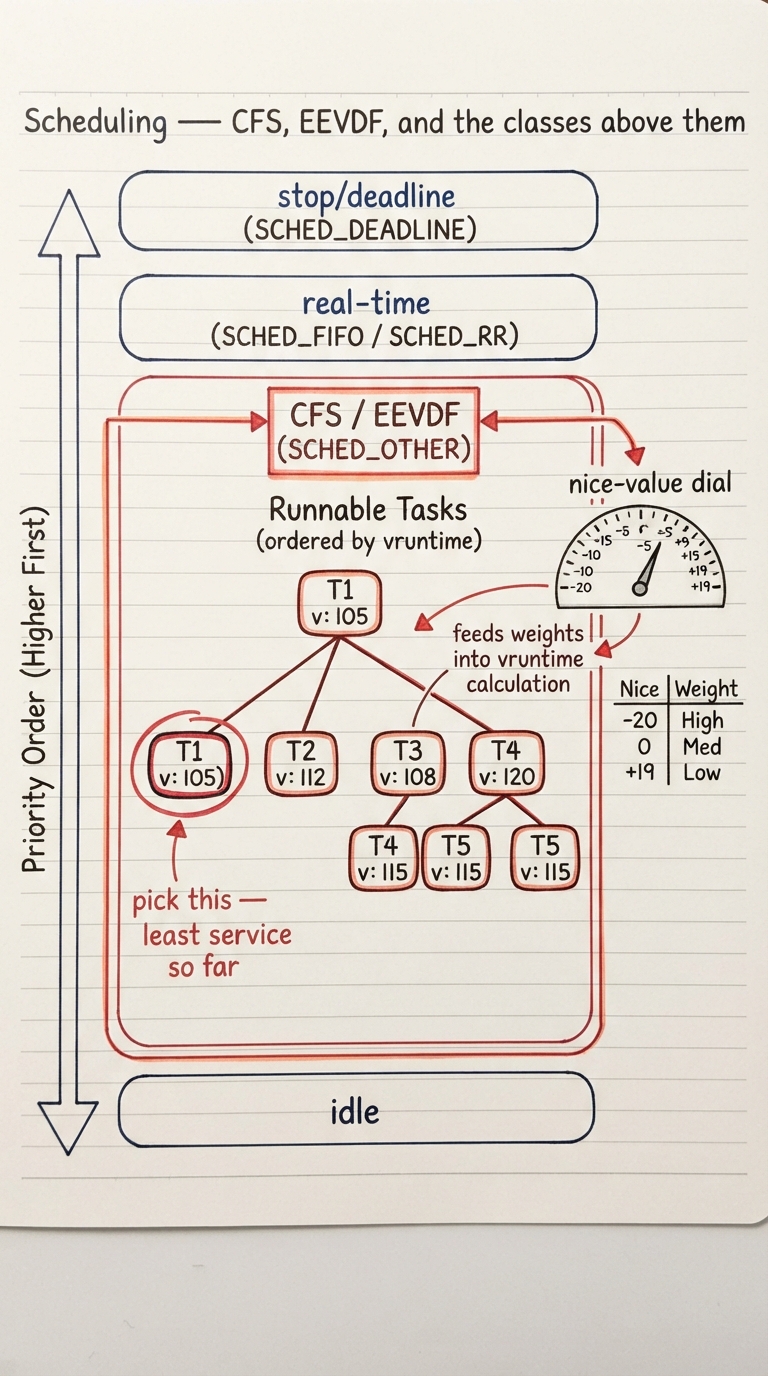 Scheduling — CFS, EEVDF, and the classes above them
stop/deadline
(SCHED_DEADLINE)
real-time
(SCHED_FIFO / SCHED_RR)
CFS / EEVDF
(SCHED_OTHER)
Priority Order (Higher First)
Runnable Tasks
(ordered by vruntime)
nice-value dial
-20
-10
-10
-15
-5
-5
-5
+9
+15
+19
+19
T1
v: 105
feeds weights
into vruntime
calculation
Nice Weight
-20 High
0 Med
+19 Low
T1
v: 105)
T2
v: 112
T3
v: 108
T4
v: 120
T4
v: 115
T5
v: 115
T5
v: 115
pick this —
least service
so far
idle